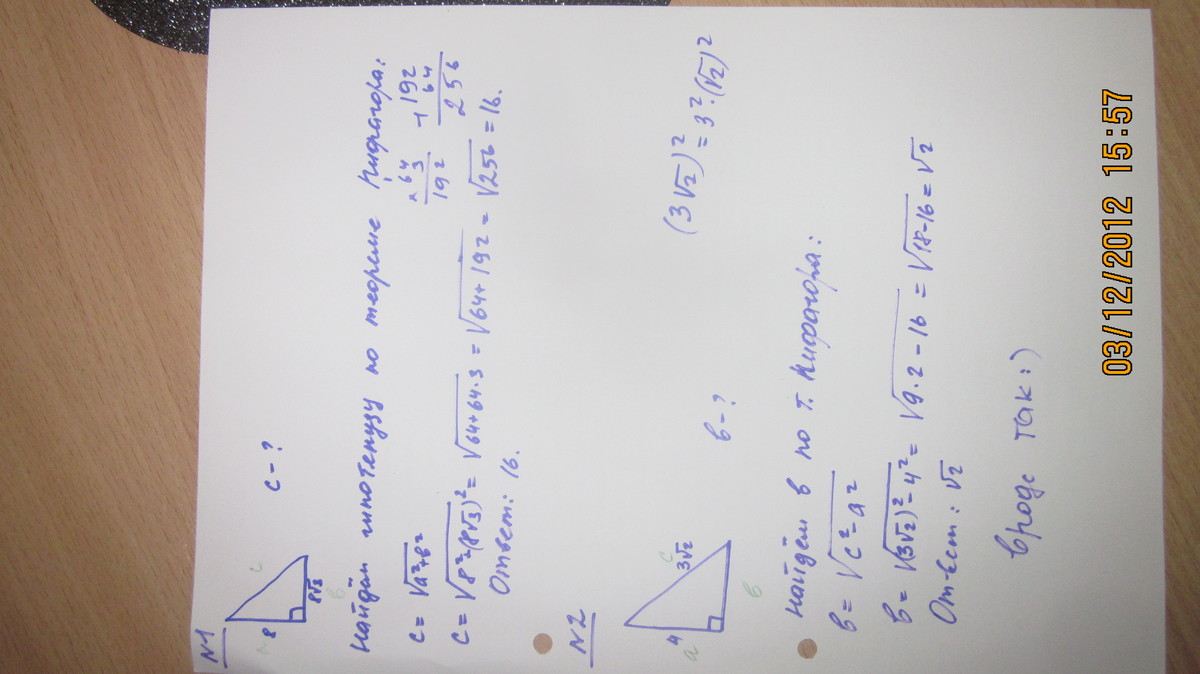 N1
8
8√3
в
c
c - ?
Найдём гипотенузу по теореме Пифагора:
c = √a²+в²
c = √8²(8√3)² = √64+64·3 = √64+192 = √256 = 16.
× 64
3
192
+ 192
64
256
Ответ: 16.
N2
a
4
c
3√2
в
в - ?
(3√2)² = 3²·(√2)²
Найдём в по т. Пифагора:
в = √c²-a²
в = √(3√2)²-4² = √9·2-16 = √18-16 = √2
Ответ: √2
вроде так:)
03/12/2012 15:57